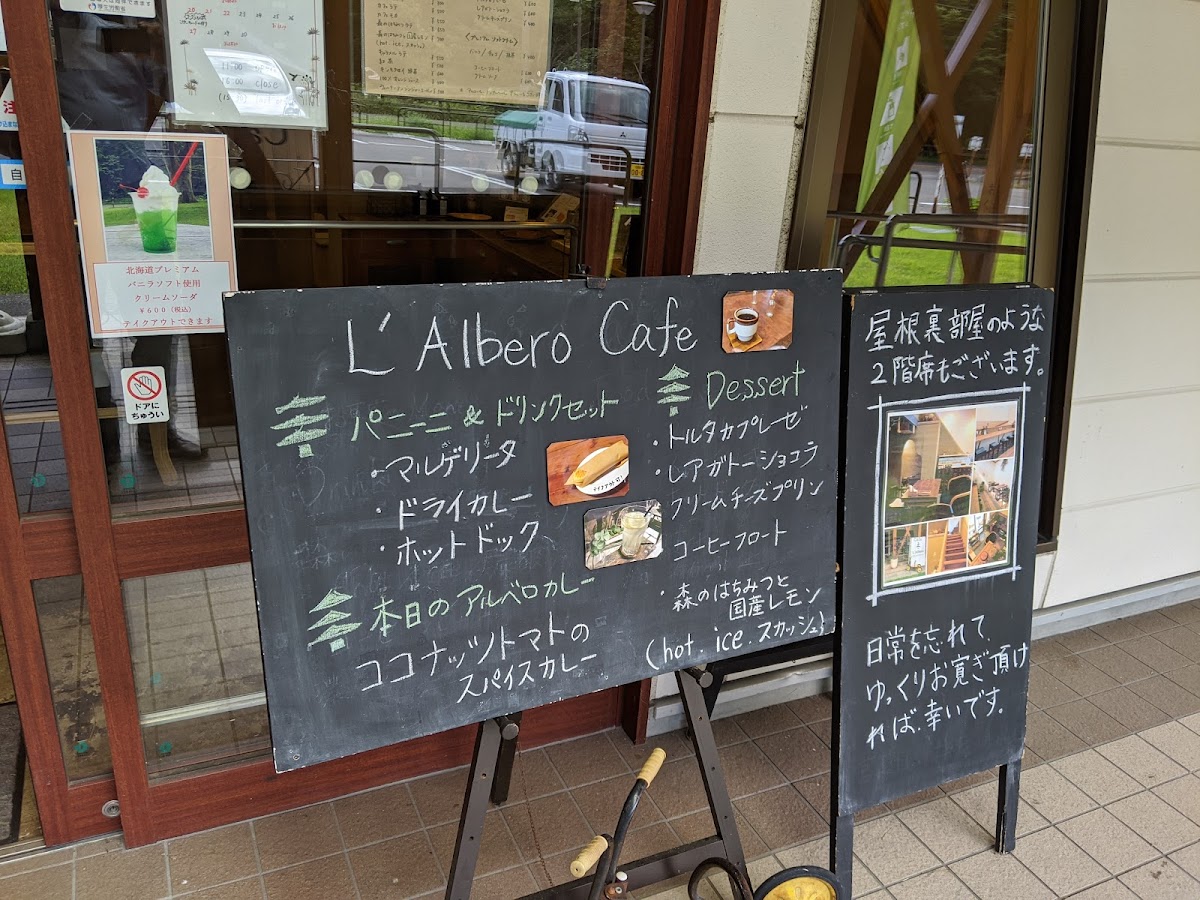 11:00
close
(hot, ice, スカッシュ)
自
注
北海道プレミアム
バニラソフト使用
クリームソーダ
¥600(税込)
テイクアウトできます
ドアに
ちゅうい
L'Albero Cafe
パニーニ & ドリンクセット
・マルゲリータ
・ドライカレー
・ホットドック
本日のアルベロカレー
ココナッツトマトの
スパイスカレー
Dessert
・トルタカプレーゼ
・レアガトーショコラ
クリームチーズプリン
コーヒーフロート
・森のはちみつと
国産レモン
(hot. ice. スカッシュ)
屋根裏部屋のような
2階席もございます。
日常を忘れて
ゆっくりお寛ぎ頂け
れば幸いです。